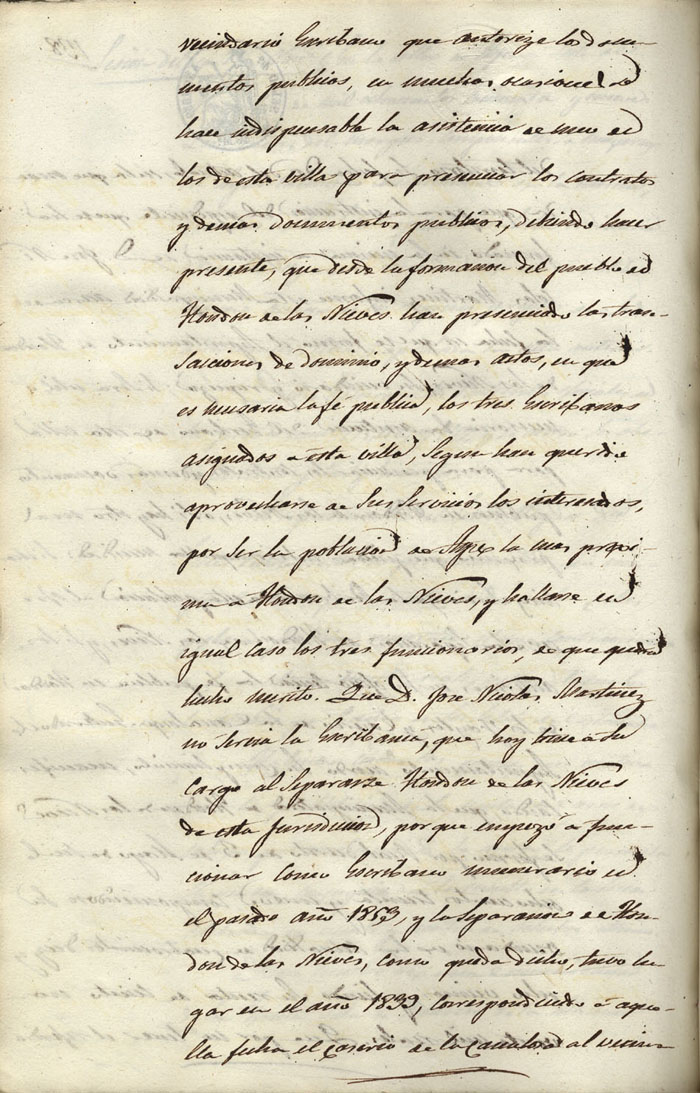 vecindario Escribano que autorize los docu-
mentos publicos, en muchas ocasiones se
hace indispensable la asistencia de uno de
los de esta villa para presenciar los contratos
y demas documentos publicos, debiendo hacer
presente, que desde la formacion del pueblo de
Hondon de las Nieves han presenciado las tran-
saiciones de dominio, y demas actos, en que
es necesaria la fé publica, los tres Escribanos
asignados a esta villa, segun han querido
aprovecharse de sus servicios los interesados,
por ser la poblacion de Aspe la mas proxi-
ma a Hondon de las Nieves, y hallarse en
igual caso los tres funcionarios, de que queda
hecho merito. Que D. Jose Nicolas Martinez
no servia la Escribania, que hoy tiene a su
cargo al separarse Hondon de las Nieves
de esta Jurisdiccion, porque empezó a fun-
cionar como Escribano numerario en
el pasado año 1853, y la separacion de Hon-
don de las Nieves, como queda dicho, tuvo lu-
gar en el año 1839, correspondiendo a aque-
lla fecha el caserio de la Canalosa al vecin-